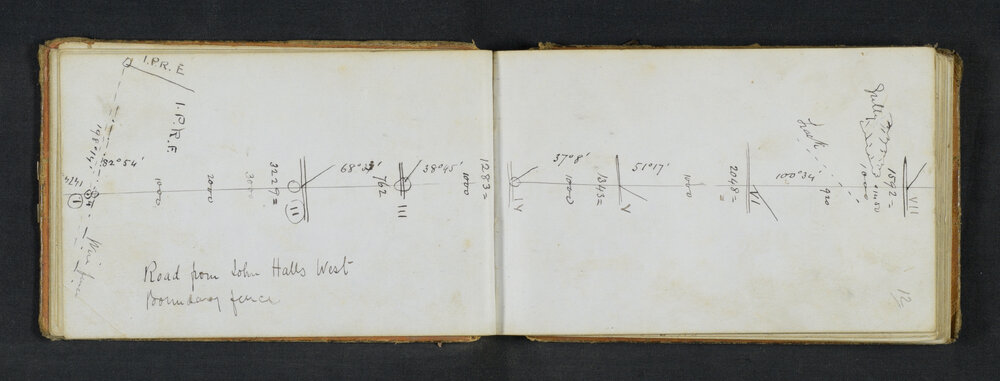 I.PR.E
I.P.R.E
198°14'
82°54'
1474
I
1000
2000
3000
3229=
II
762
III
38°45'
1000
1283=
IV
37°8'
1000
1343=
V
51°17'
1000
2048=
VI
100°34'
920
Track
Gully
1000
1592=
VII
Road from John Halls West
Boundary fence
12